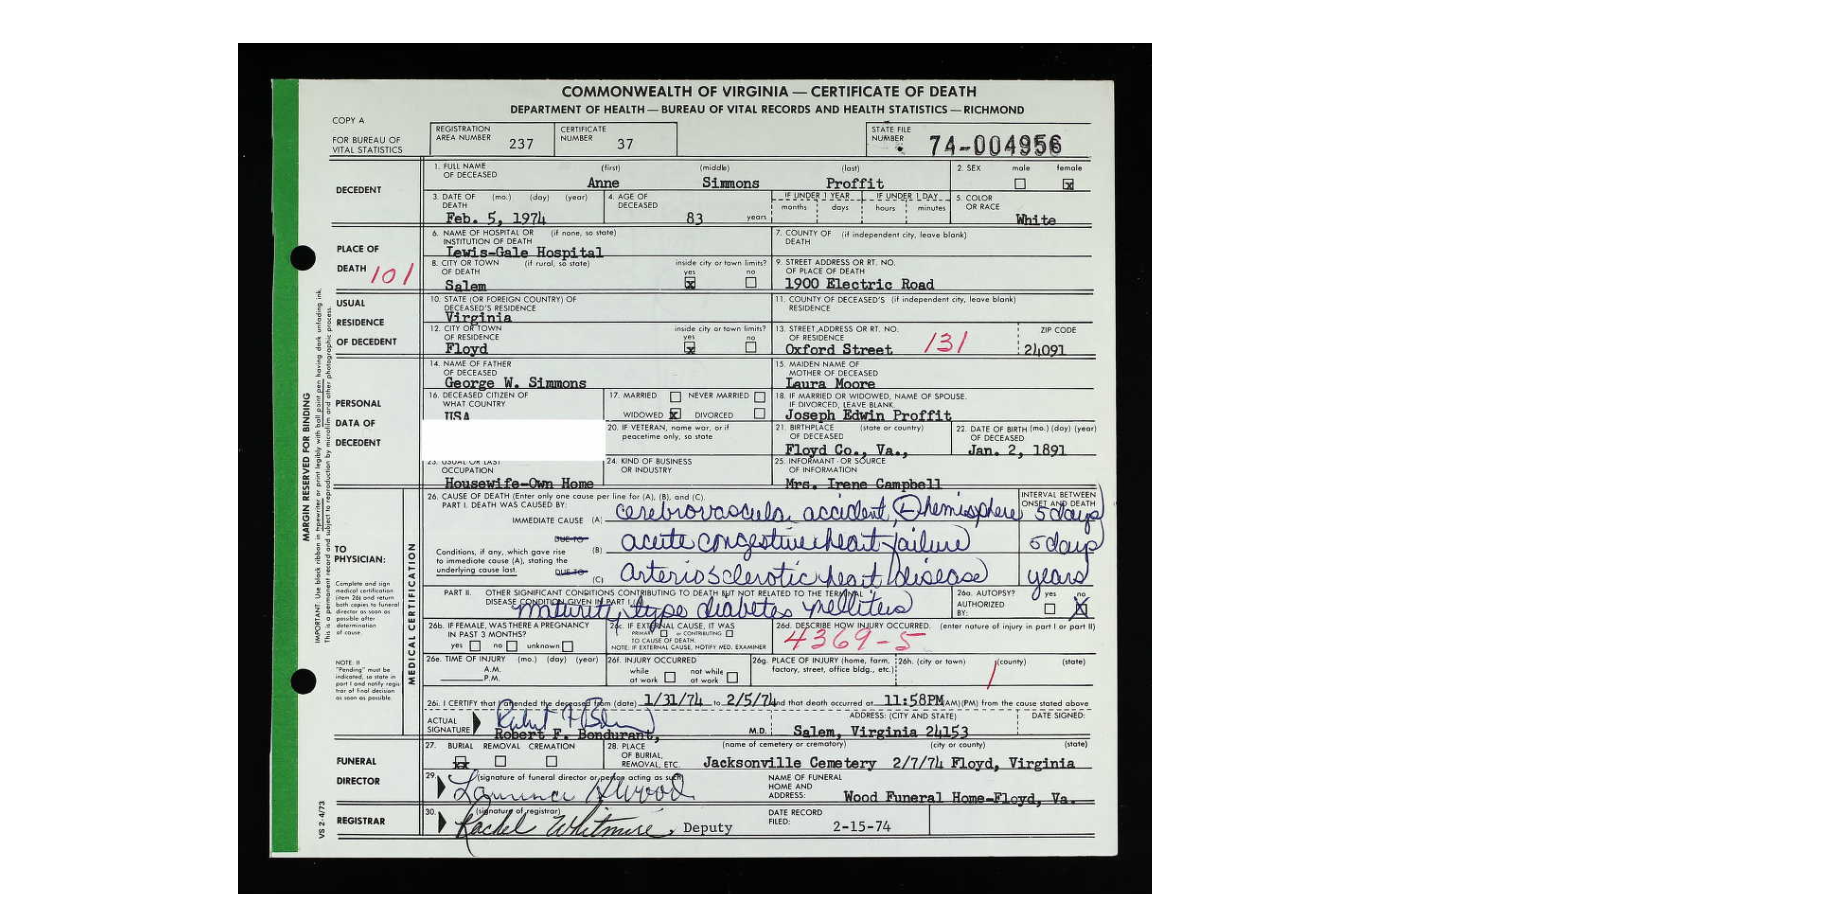 COMMONWEALTH OF VIRGINIA — CERTIFICATE OF DEATH
DEPARTMENT OF HEALTH — BUREAU OF VITAL RECORDS AND HEALTH STATISTICS — RICHMOND
COPY A
FOR BUREAU OF VITAL STATISTICS
REGISTRATION AREA NUMBER 237
CERTIFICATE NUMBER 37
STATE FILE NUMBER 74-004956
DECEDENT
1. FULL NAME OF DECEASED (first) (middle) (last)
Anne Simmons Proffit
2. SEX male female x
3. DATE OF DEATH (mo.) (day) (year)
Feb. 5, 1974
4. AGE OF DECEASED
83 years
IF UNDER 1 YEAR months days
IF UNDER 1 DAY hours minutes
5. COLOR OR RACE
White
PLACE OF DEATH 101
6. NAME OF HOSPITAL OR INSTITUTION OF DEATH (if none, so state)
Lewis-Gale Hospital
7. COUNTY OF DEATH (if independent city, leave blank)
8. CITY OR TOWN OF DEATH (if rural, so state)
Salem
inside city or town limits? yes x no
9. STREET ADDRESS OR RT. NO. OF PLACE OF DEATH
1900 Electric Road
USUAL RESIDENCE OF DECEDENT
10. STATE (OR FOREIGN COUNTRY) OF DECEASED'S RESIDENCE
Virginia
11. COUNTY OF DECEASED'S RESIDENCE (if independent city, leave blank)
12. CITY OR TOWN OF RESIDENCE
Floyd
inside city or town limits? yes x no
13. STREET ADDRESS OR RT. NO. OF RESIDENCE
Oxford Street 131
ZIP CODE
24091
PERSONAL DATA OF DECEDENT
14. NAME OF FATHER OF DECEASED
George W. Simmons
15. MAIDEN NAME OF MOTHER OF DECEASED
Laura Moore
16. DECEASED CITIZEN OF WHAT COUNTRY
USA
17. MARRIED NEVER MARRIED
WIDOWED x DIVORCED
18. IF MARRIED OR WIDOWED, NAME OF SPOUSE. IF DIVORCED, LEAVE BLANK
Joseph Edwin Proffit
20. IF VETERAN, name war, or if peacetime only, so state
21. BIRTHPLACE OF DECEASED (state or country)
Floyd Co., Va.,
22. DATE OF BIRTH (mo.) (day) (year) OF DECEASED
Jan. 2, 1891
23. USUAL OR LAST OCCUPATION
Housewife-Own Home
24. KIND OF BUSINESS OR INDUSTRY
25. INFORMANT OR SOURCE OF INFORMATION
Mrs. Irene Campbell
MARGIN RESERVED FOR BINDING
IMPORTANT: Use black ribbon in typewriter or print legibly with ball point pen having dark unfading ink.
This is a permanent record and subject to reproduction by microfilm and other photographic process.
VS 2-4/73
MEDICAL CERTIFICATION
TO PHYSICIAN:
Complete and sign medical certification (item 26) and return both copies to funeral director as soon as possible after determination of cause.
NOTE: If "Pending" must be indicated, so state in part I and notify registrar of final decision as soon as possible.
26. CAUSE OF DEATH (Enter only one cause per line for (A), (B), and (C).
PART I. DEATH WAS CAUSED BY:
INTERVAL BETWEEN ONSET AND DEATH
IMMEDIATE CAUSE (A) cerebrovascula accident, L hemisphere 5 days
DUE TO
(B) acute congestive heart failure 5 days
Conditions, if any, which gave rise to immediate cause (A), stating the underlying cause last.
DUE TO
(C) arteriosclerotic heart disease years
PART II. OTHER SIGNIFICANT CONDITIONS CONTRIBUTING TO DEATH BUT NOT RELATED TO THE TERMINAL DISEASE CONDITION GIVEN IN PART I
maturity type diabetes mellitus
26a. AUTOPSY? AUTHORIZED BY: yes no X
26b. IF FEMALE, WAS THERE A PREGNANCY IN PAST 3 MONTHS?
yes no unknown
26c. IF EXTERNAL CAUSE, IT WAS
PRIMARY or CONTRIBUTING
TO CAUSE OF DEATH.
NOTE: IF EXTERNAL CAUSE, NOTIFY MED. EXAMINER
26d. DESCRIBE HOW INJURY OCCURRED. (enter nature of injury in part I or part II)
4369-5
26e. TIME OF INJURY (mo.) (day) (year)
A.M.
P.M.
26f. INJURY OCCURRED
while at work not while at work
26g. PLACE OF INJURY (home, farm, factory, street, office bldg., etc.)
26h. (city or town) (county) (state)
26i. I CERTIFY that I attended the deceased from (date) 1/31/74 to 2/5/74 and that death occurred at 11:58PM (AM)(PM) from the cause stated above
ACTUAL SIGNATURE
Robert F. Bondurant, M.D.
ADDRESS: (CITY AND STATE)
Salem, Virginia 24153
DATE SIGNED:
FUNERAL DIRECTOR
27. BURIAL REMOVAL CREMATION
xx
28. PLACE OF BURIAL, REMOVAL, ETC.
(name of cemetery or crematory) (city or county) (state)
Jacksonville Cemetery 2/7/74 Floyd, Virginia
29. (signature of funeral director or person acting as such)
NAME OF FUNERAL HOME AND ADDRESS:
Wood Funeral Home-Floyd, Va.
REGISTRAR
30. (signature of registrar)
Rachel Whitmire, Deputy
DATE RECORD FILED:
2-15-74